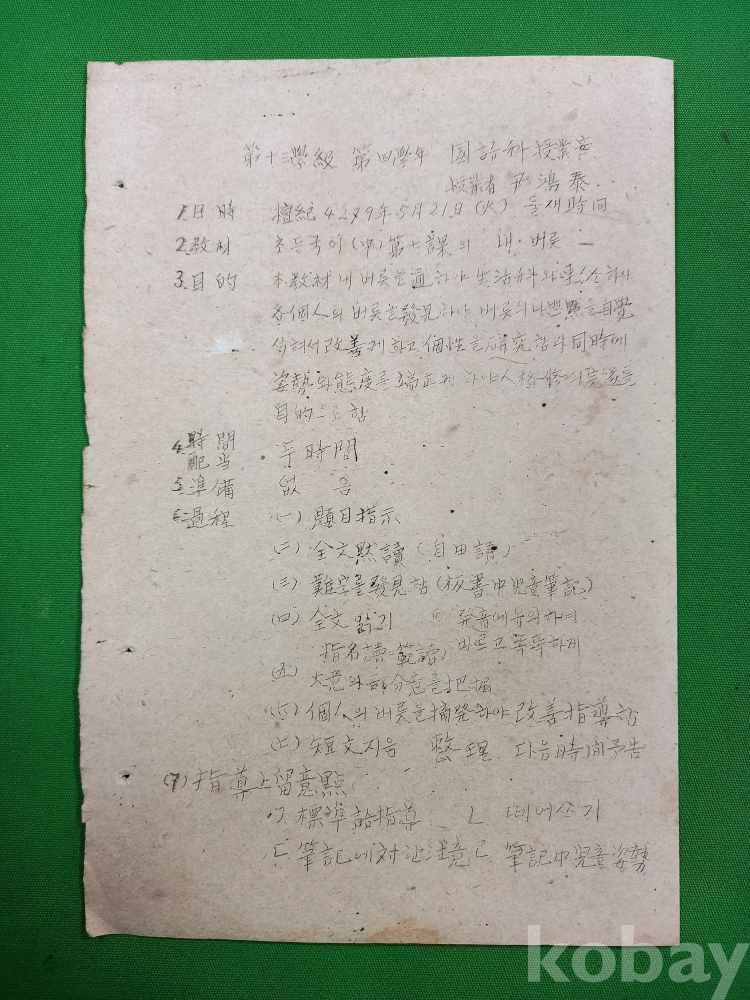 第十三學級 第四學年 國語科授業案
授業者 尹鴻泰
1. 日時 檀紀4279年5月21日(火) 둘재時間
2. 敎材 초등국어(中)第十課의 내·버릇
3. 目的 本敎材 내버릇을通하야 生活科와連絡하야
各個人의 버릇을發見하야 버릇의나쁜點을自覺
식혀서改善케하고 個性을硏究함과同時에
姿勢와態度를端正케하야人格修
目的으로함
4. 時間
配当 두時間
5. 準備 없음
6. 過程 (一) 題目指示
(二) 全文默讀 (自由讀)
(三) 難字를發見함(板書中兒童筆記)
(四) 全文 읽기 發音에유의하여
指名讀·範讀) 바르고똑똑하게
(五) 大意와部分意를把握
(六) 個人의버릇을摘発하야 改善指導함
(七) 短文지음 整理 다음時间予告
(7) 指導上留意點
ㄱ 標準語指導 ㄴ 띠어쓰기
ㄷ 筆記에対한注意 ㄹ 筆記中兒童姿勢
kobay